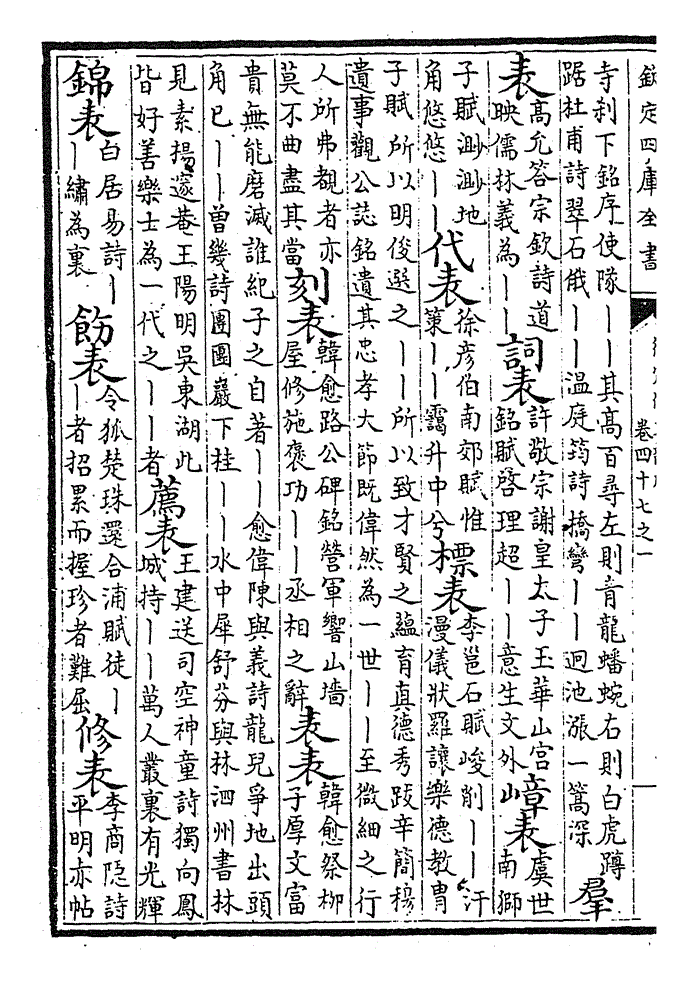 欽定四庫全書
卷四十七之一
寺刹下銘序使隊——其髙百尋左則青龍蟠蜿右則白虎蹲
踞杜甫詩翠石俄——温庭筠詩橋彎——迥池漲一篙深
羣
表
髙允答宗欽詩道
映儒林義為——
詞表
許敬宗謝皇太子玉華山宫
銘賦啓理超——意生文外
嶂表
虞世
南獅
子賦渺渺地
角悠悠——
代表
徐彦伯南郊賦惟
策——靄升中兮
標表
李邕石賦峻削——汗
漫儀狀羅讓樂德教胄
子賦所以明俊選之——所以致才賢之蘊育真德秀跋辛簡穆
遺事觀公誌銘遺其忠孝大節既偉然為一世——至微細之行
人所弗覩者亦
莫不曲盡其當
刻表
韓愈路公碑銘營軍響山墻
屋修施褒功——丞相之辭
表表
韓愈祭柳
子厚文富
貴無能磨滅誰紀子之自著——愈偉陳與義詩龍兒爭地出頭
角已——曾幾詩團團巖下桂——水中犀舒芬與林泗州書林
見素揚邃菴王陽明吴東湖此
皆好善樂士為一代之——者
薦表
王建送司空神童詩獨向鳳
城持——萬人叢裏有光輝
錦表
白居易詩—
—繡為裏
飭表
令狐楚珠還合浦賦徒—
—者招累而握珍者難屈
修表
李商隐詩
平明亦帖